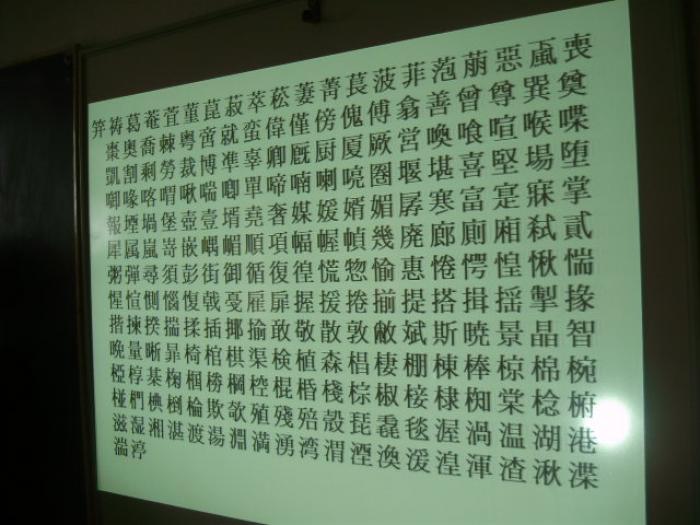 笄祷葛菴萓菫菎菽萃菘萋菁萇菠菲萢萠惡喪
棗奥喬棘粤啻就蛮偉僅傍傀傅翕善曾尊巽奠
凱割剰勞裁博凖辜卿厩厨厦厥営喚喰喧喉喋
啣喙喀喟啾喘喞單啼喃喇喨圏堰堪喜堅場堕
報堙堝堡壺壹壻堯奢媒媛婿媚孱寒富寔寐掌
犀属嵐嵜嵌嵎嵋順項幅幄幀幾廃廊廁廂弑貳
粥弾尋須彭街御循復徨慌惣愉惠惓愕惶愀惴
惺愃惻惱愎戟戞雇扉握援捲揃提搭揖揺掣掾
揩揀揆揣揉插揶揄敢敬散敦敝斌斯暁景晶智
晩量晰暃椅棺棋渠検植森椙棲棚棟棒椋棉椀
椏椁棊椈椢棡椌棍棔棧棕椒椄棣椥棠棯椨
椪椚椣椡棆欺欹殖殘殕殻琵毳毯渥渦温湖港
滋湿湘湛渡湯淵満湧湾渭湮渙湲湟渾渣湫渫
湍渟